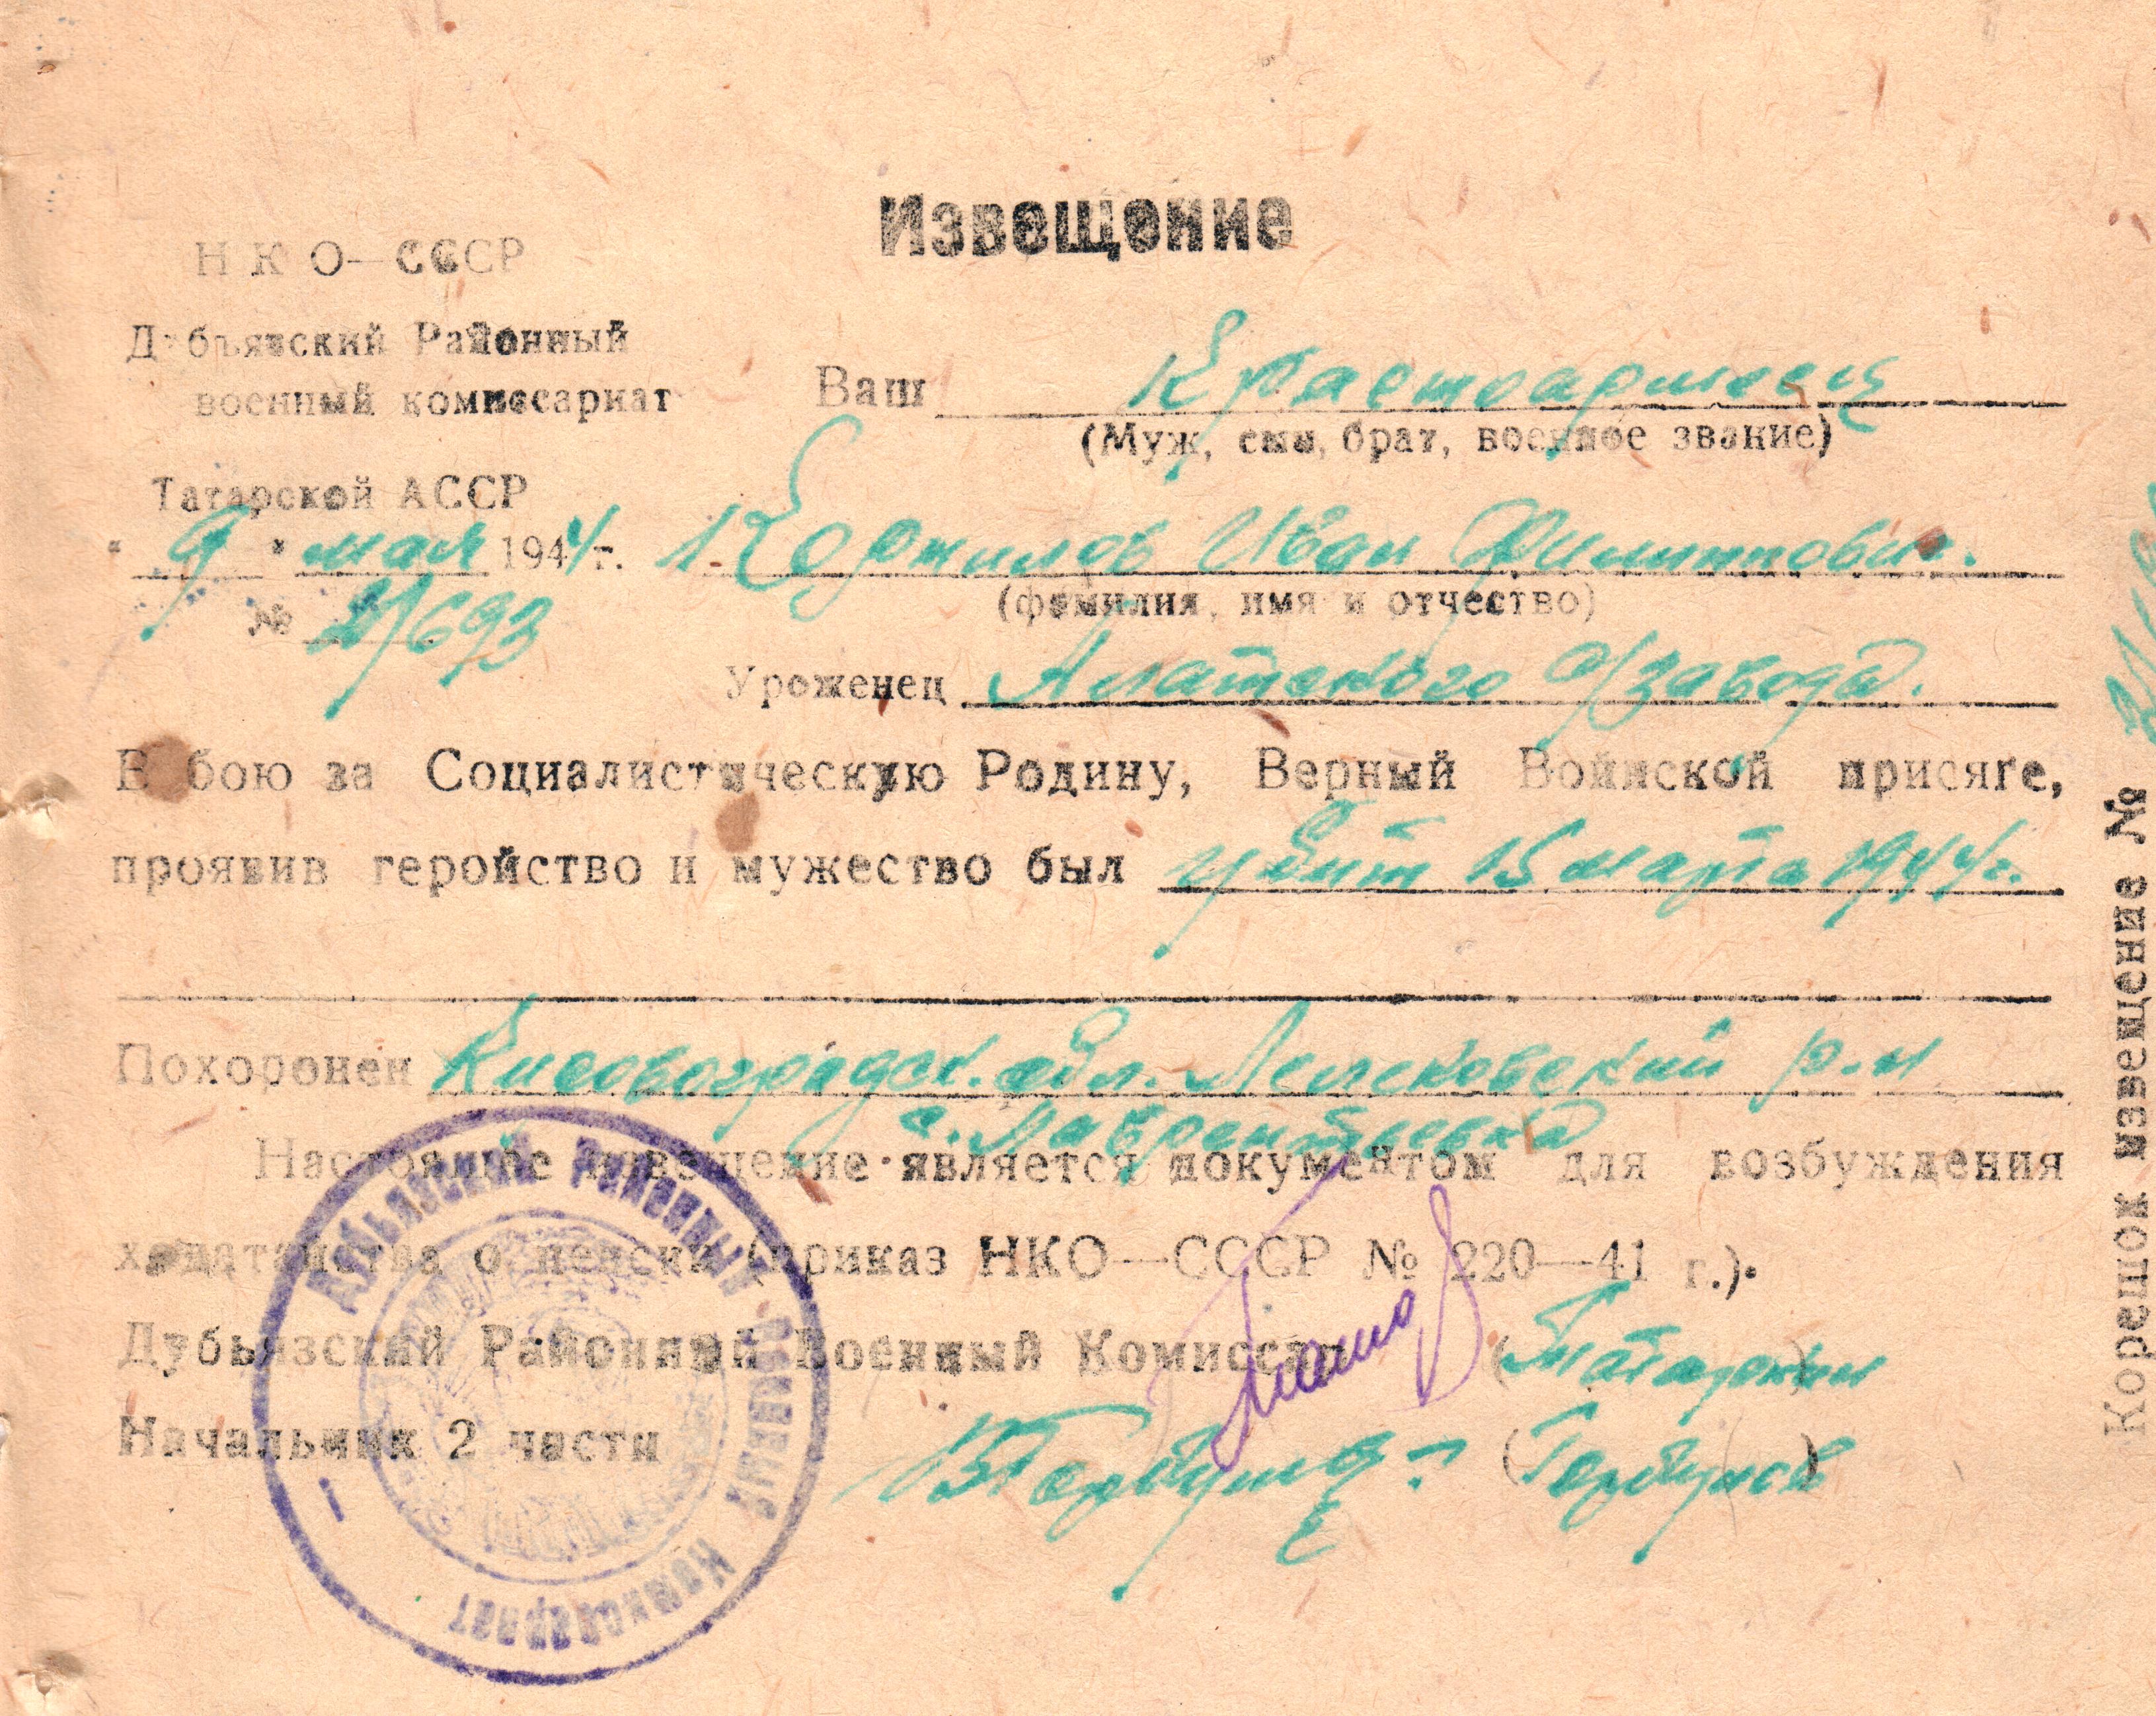 Извещение
НКО—СССР
Дубьязский Районный
военный комиссариат
Татарской АССР
"9" мая 1944 г.
№ 2/693
Ваш Красноармеец
(Муж, сын, брат, военное звание)
Иван Филиппович.
(фамилия, имя и отчество)
Уроженец Алатского с/завода.
В бою за Социалистическую Родину, Верный Воинской присяге,
проявив геройство и мужество был убит 15 марта 1944 г.
Похоронен Кировоградск. обл. р-н
с. Лаврентьевка
Настоящее извещение является документом для возбуждения
ходатайства о пенсии (приказ НКО—СССР № 220—41 г.).
Дубьязский Районный Военный Комиссар
Начальник 2 части (Горбунов)
Дубьязский Районный Военный Комиссариат
Корешок извещение №